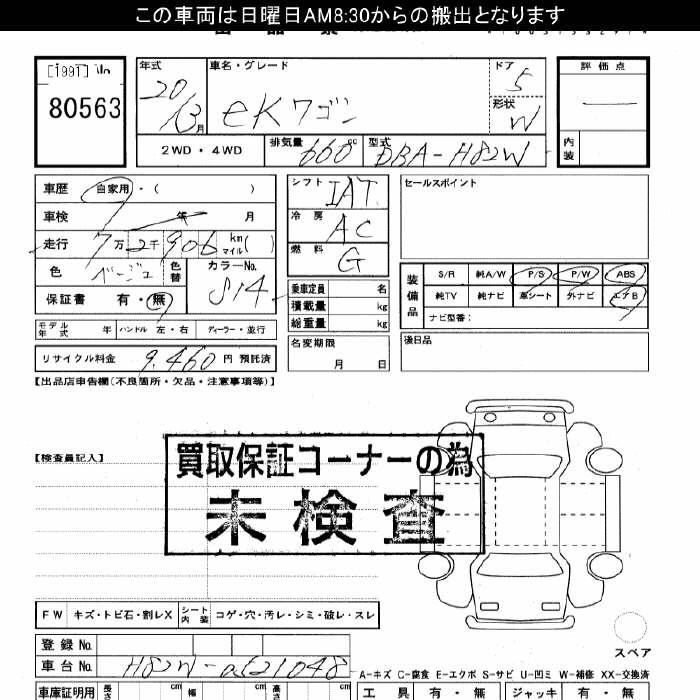 この車両は日曜日AM8:30からの搬出となります
[1991]
80563
年式
車名・グレード
ドア
評価点
20
eKワゴン
5
形状
W
月
2WD・4WD
排気量
660
cc
型式
DBA-H82W
内装
車歴
自家用・( )
シフト
IAT
セールスポイント
車検
年 月
冷房
AC
走行
7万2千906
km
マイル
( )
燃料
G
色
ベージュ
色替
カラーNo.
S14
装備品
S/R 純A/W P/S P/W ABS
乗車定員 名
保証書 有・無
積載量 kg
純TV 純ナビ 革シート 外ナビ エアB
総重量 kg
ナビ型番:
モデル年式 年 ハンドル 左・右 ディーラー・並行
名変期限
月 日
後日品
リサイクル料金 9,460 円 預託済
【出品店申告欄(不良箇所・欠品・注意事項等)】
【検査員記入】
買取保証コーナーの為
未検査
FW キズ・トビ石・割レX シート内装 コゲ・穴・汚レ・シミ・破レ・スレ
登録No.
スペア
車台No. H82W-
A-キズ C-腐食 E-エクボ S-サビ U-凹ミ W-補修 XX-交換済
車庫証明用 長さ cm 幅 cm 高さ cm
工具 有・無 ジャッキ 有・無